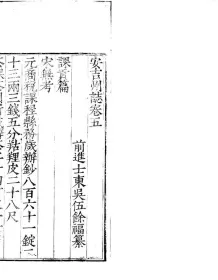 安吉州誌卷五
前進士東吳伍餘福纂
課貢篇
宋無考
元商稅課程縣務歲辦鈔八百六十一錠二
十三兩三錢五分雜狸皮二十八尺